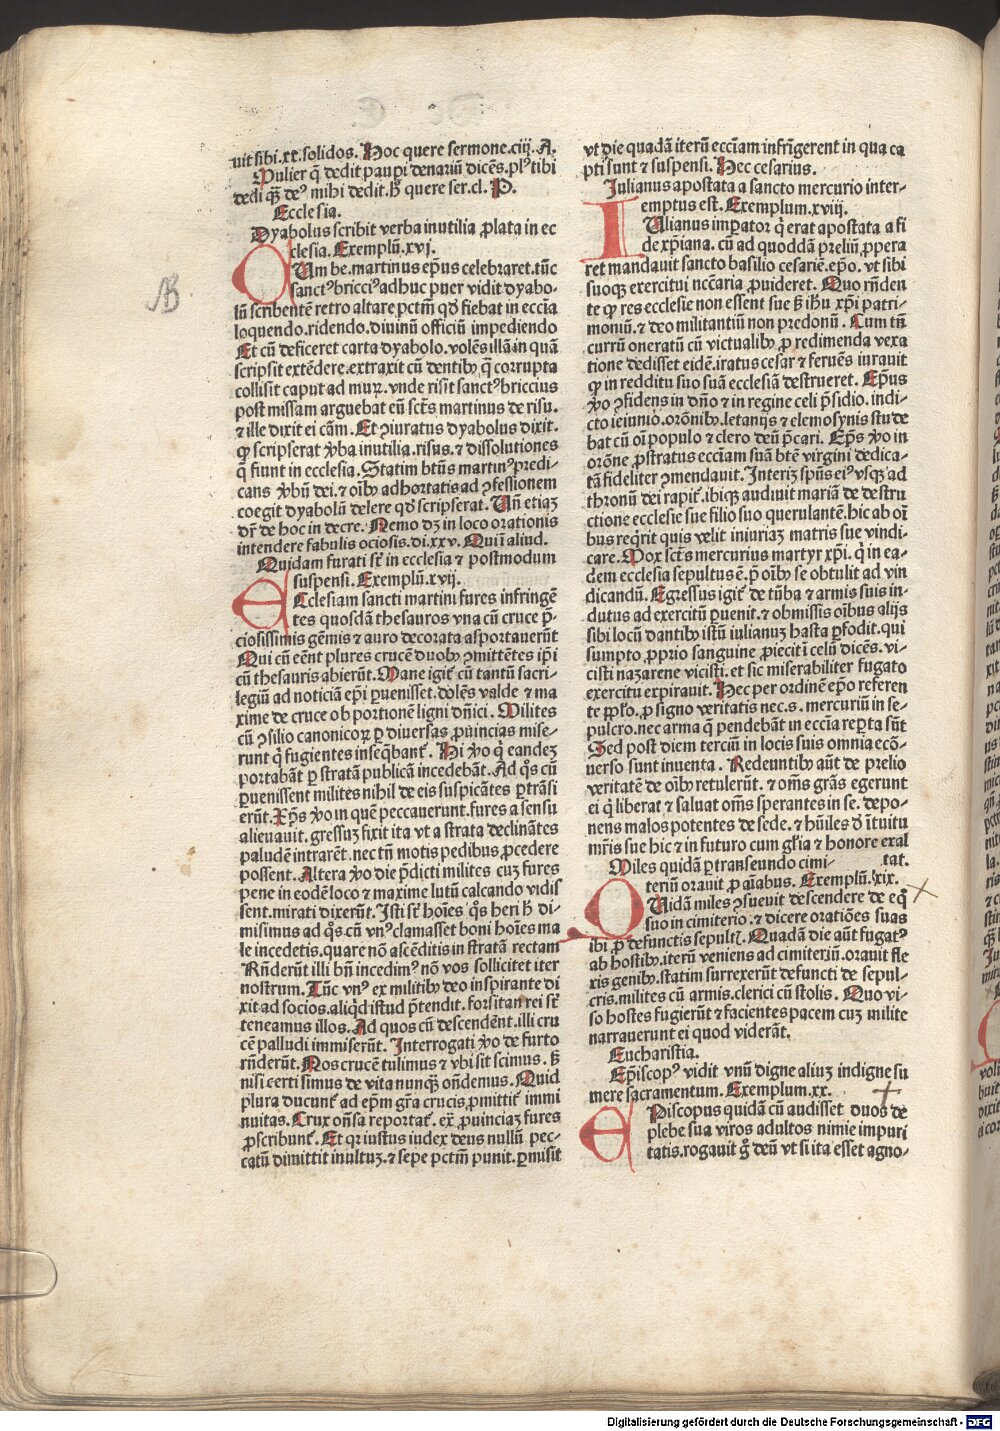 uit sibi.xx.solidos. Hoc quere sermone.ciij. A.
Mulier q̄ dedit paupi denariū dicēs.plꝰ tibi
dedi qꝫ̄ deꝰ mihi dedit.h̄ quere ser.cl. P.
Ecclesia.
Dyabolus scribit verba inutilia ꝓlata in ec
clesia. Exemplū.xvj.
CUm be.martinus ep̄us celebraret.tūc
sanctꝰ bricciꝰ adhuc puer vidit dyabo-
lū scribentē retro altare.pctm̄ qd̓ fiebat in eccīa
loquendo.ridendo.diuinū officiū impediendo
Et cū deficeret carta dyabolo.volēs illā in quā
scripsit extēdere.extraxit cū dentibꝫ q̄ corrupta
collisit caput ad muꝝ.vnde risit sanctꝰ briccius
post missam arguebat eū sct̄s martinus de risu.
⁊ ille dixit ei cām. Et ꝯiuratus dyabolus dixit.
ꝙ scripserat v̓ba inutilia.risus.⁊ dissolutiones
q̄ fiunt in ecclesia. Statim btūs martinꝰ predi-
cans v̓bū dei.⁊ oībꝫ adhortatis ad ꝯfessionem
coegit dyabolū delere qd̓ scripserat. Un̄ etiaꝫ
dr̄ de hoc in decre. Nemo dꝫ in loco orationis
intendere fabulis ociosis.di.xxv. Quiī aliud.
Quidam furati st̄ in ecclesia ⁊ postmodum
suspensi. Exemplū.xvij.
ECclesiam sancti martini fures infringē
tes quosdā thesauros vna cū cruce p̄-
ciosissimis gēmis ⁊ auro decorata asportauerūt
Qui cū eēnt plures crucē duobꝫ ꝯmittētes ip̄i
cū thesauris abierūt. Mane igit̄ cū tantū sacri-
legiū ad noticiā ep̄i ꝑuenisset.dolēs valde ⁊ ma
xime de cruce ob portionē ligni dn̄ici. Milites
cū ꝯsilio canonicoꝝ ꝑ diuersas ꝓuincias mise-
runt q̇ fugientes inseq̄bant̄. Hi v̓o q̇ eandeꝫ
portabāt ꝑ stratā publicā incedebāt. Ad q̊s cū
ꝑuenissent milites nihil de eis suspicātes ꝑtrāsi
erūt. Xp̄s v̓o in quē peccauerunt.fures a sensu
alieuauit.gressuꝫ fixit ita vt a strata declināтes
paludē intrarēt.nec tn̄ motis pedibus ꝓcedere
possent. Altera v̓o die p̄dicti milites cuꝫ fures
pene in eodē loco ⁊ maxime lutū calcando vidis
sent.mirati dixerūt. Isti st̄ hoīes q̊s heri h̄ di-
misimus ad q̊s.cū vnꝰ clamasset boni hoīes ma
le incedetis.quare nō ascēditis in stratā rectam
Rn̄derūt illi bn̄ incedimꝰ nō vos sollicitet iter
nostrum. Tūc vnꝰ ex militibꝫ deo inspirante di
xit ad socios.aliq̇d istud p̄tendit.forsitan rei st̄
teneamus illos. Ad quos cū descendēnt.illi cru
cē palludi immiserūt. Interrogati v̓o de furto
rn̄derūt. Nos crucē tulimus ⁊ vbi sit scimus. sꝫ
nisi certi simus de vita nunqꝫ̄ on̄demus. Quid
plura ducunt̄ ad ep̄m gr̄a crucis ꝓmittit̄ immi
nuitas. Crux on̄sa reportat̄. ex ꝓuinciaꝫ fures
ꝓscribunt̄. Et qr iustus iudex deus nullū pec-
catū dimittit inultuꝫ.⁊ sepe pctm̄ punit.ꝑmisit
vt die quadā iterū eccīam infrīgerent in qua ca
pti sunt ⁊ suspensi. Hec cesarius.
Julianus apostata a sancto mercurio inter-
emptus est. Exemplum.xviij.
IUlianus imꝑator q̇ erat apostata a fi
de xp̄iana. cū ad quoddā preliū ꝓpera
ret mandauit sancto basilio cesariē.ep̄o. vt sibi
suoqꝫ exercitui nccāria ꝓuideret. Quo rn̄den
te ꝙ res ecclesie non essent sue sꝫ ih̄u xp̄i patri-
moniū.⁊ deo militantiū non predonū. Cum tn̄
currū oneratū cū victualibꝫ ꝓ redimenda vexa
tione dedisset eidē.iratus cesar ⁊ feruēs iurauit
ꝙ in redditu suo suā ecclesiā destrueret. Ep̄us
v̓o ꝯfidens in dn̄o ⁊ in regine celi p̄sidio. indi-
cto ieiunio.orōnibꝫ.letanijs ⁊ elemosynis stude
bat cū oī populo ⁊ clero deū p̄cari. Ep̄s v̓o in
orōne ꝓstratus eccīam suā btē virgini dedica-
tā fideliter ꝯmendauit. Interiꝫ spūs eiꝰ vsqꝫ ad
thronū dei rapit̄.ibiqꝫ audiuit mariā de destru
ctione ecclesie sue filio suo querulantē.hic ab oī
bus req̇rit quis velit iniuriaꝫ matris sue vindi-
care. Mox sct̄s mercurius martyr xp̄i. q̇ in ea-
dem ecclesia sepultus ē.p̄ oībꝫ se obtulit ad vin
dicandū. Egressus igit̄ de tūba ⁊ armis suis in-
dutus ad exercitū ꝑuenit.⁊ obmissis oībus alijs
sibi locū dantibꝫ istū iulianuꝫ hasta ꝑfodit.qui
sumpto ꝓprio sanguine ꝓiecit ī celū dicēs. vi-
cisti nazarene vicisti. et sic miserabiliter fugato
exercitu expirauit. Hec per ordinē ep̄o referen
te pp̄lo. ꝓ signo veritatis nec.s. mercuriū in se-
pulcro.nec arma q̄ pendebāt in eccīa reꝑta sūt
Sed post diem terciū in locis suis omnia ecō-
uerso sunt inuenta. Redeuntibꝫ aūt de prelio
veritatē de oībꝫ retulerūt. ⁊ om̄s grās egerunt
ei q̇ liberat ⁊ saluat om̄s sperantes in se. depo-
nens malos potentes de sede. ⁊ hūiles ob ītuitu
mr̄is sue hic ⁊ in futuro cum gl̄ia ⁊ honore exal
Miles quidā ꝑtranseundo cimi- tat.
teriū orauit ꝓ aīabus. Exemplū.xix.
QUidā miles ꝯsueuit descendere de eq̊
suo in cimiterio.⁊ dicere oratiōes suas
ibi ꝓ defunctis sepultꝭ. Quadā die aūt fugatꝰ
ab hostibꝫ.iterū veniens ad cimiteriū.orauit fle
xis genibꝫ.statim surrexerūt defuncti de sepul-
cris.milites cū armis.clerici cū stolis. Quo vi-
so hostes fugierūt ⁊ facientes pacem cuꝫ milite
narrauerunt ei quod viderāt.
Eucharistia.
Ep̄iscopꝰ vidit vnū digne aliuꝫ indigne su
mere sacramentum. Exemplum.xx.
EPiscopus quidā cū audisset duos de
plebe sua viros adultos nimie impuri
tatis.rogauit g̊ deū vt si ita esset agno-
Digitalisierung gefördert durch die Deutsche Forschungsgemeinschaft - DFG